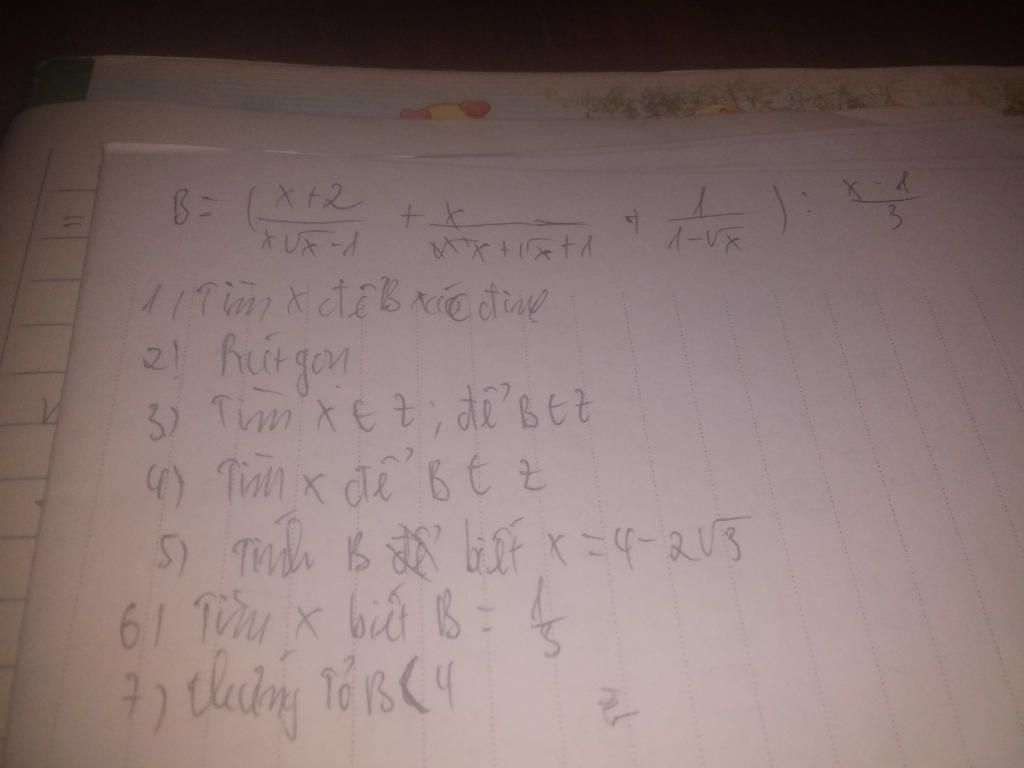 B = (\frac{x+2}{x\sqrt{x}-1} + \frac{x}{x+\sqrt{x}+1} + \frac{1}{1-\sqrt{x}}) : \frac{x-1}{3}
1, Tìm x để B xác định
2! Rút gọn
3) Tìm x ∈ Z ; để B ∈ Z
4) Tìm x để B ∈ Z
5) Tính B biết x = 4 - 2\sqrt{3}
6) Tìm x biết B = \frac{1}{3}
7) Chứng Tỏ B < 4